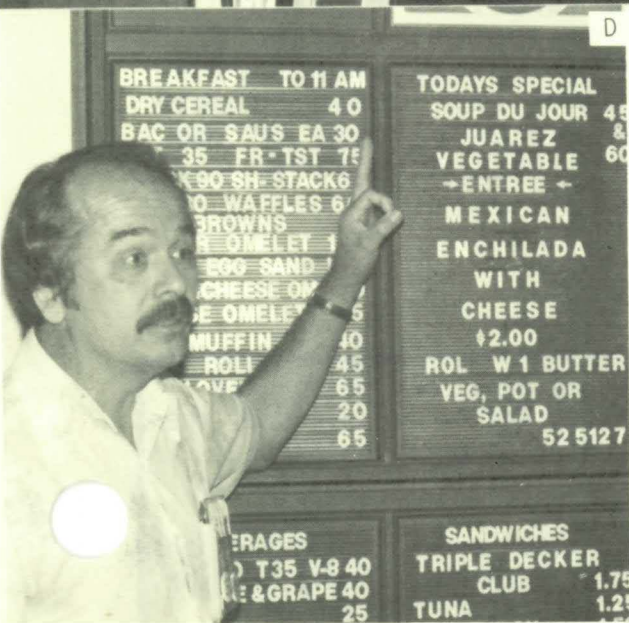 D
BREAKFAST TO 11 AM
DRY CEREAL 40
BAC OR SAUS EA 30
35 FR-TST 75
90 SH-STACK 6
WAFFLES 6
BROWNS
OMELET 1
EGG SAND
CHEESE OM
OMELET 5
MUFFIN 40
ROLL 45
65
20
65
TODAYS SPECIAL
SOUP DU JOUR 45
JUAREZ &
VEGETABLE 60
→ENTREE←
MEXICAN
ENCHILADA
WITH
CHEESE
$2.00
ROL W 1 BUTTER
VEG, POT OR
SALAD
52 5127
ERAGES
T35 V-8 40
E & GRAPE 40
25
SANDWICHES
TRIPLE DECKER
CLUB 1.75
TUNA 1.25